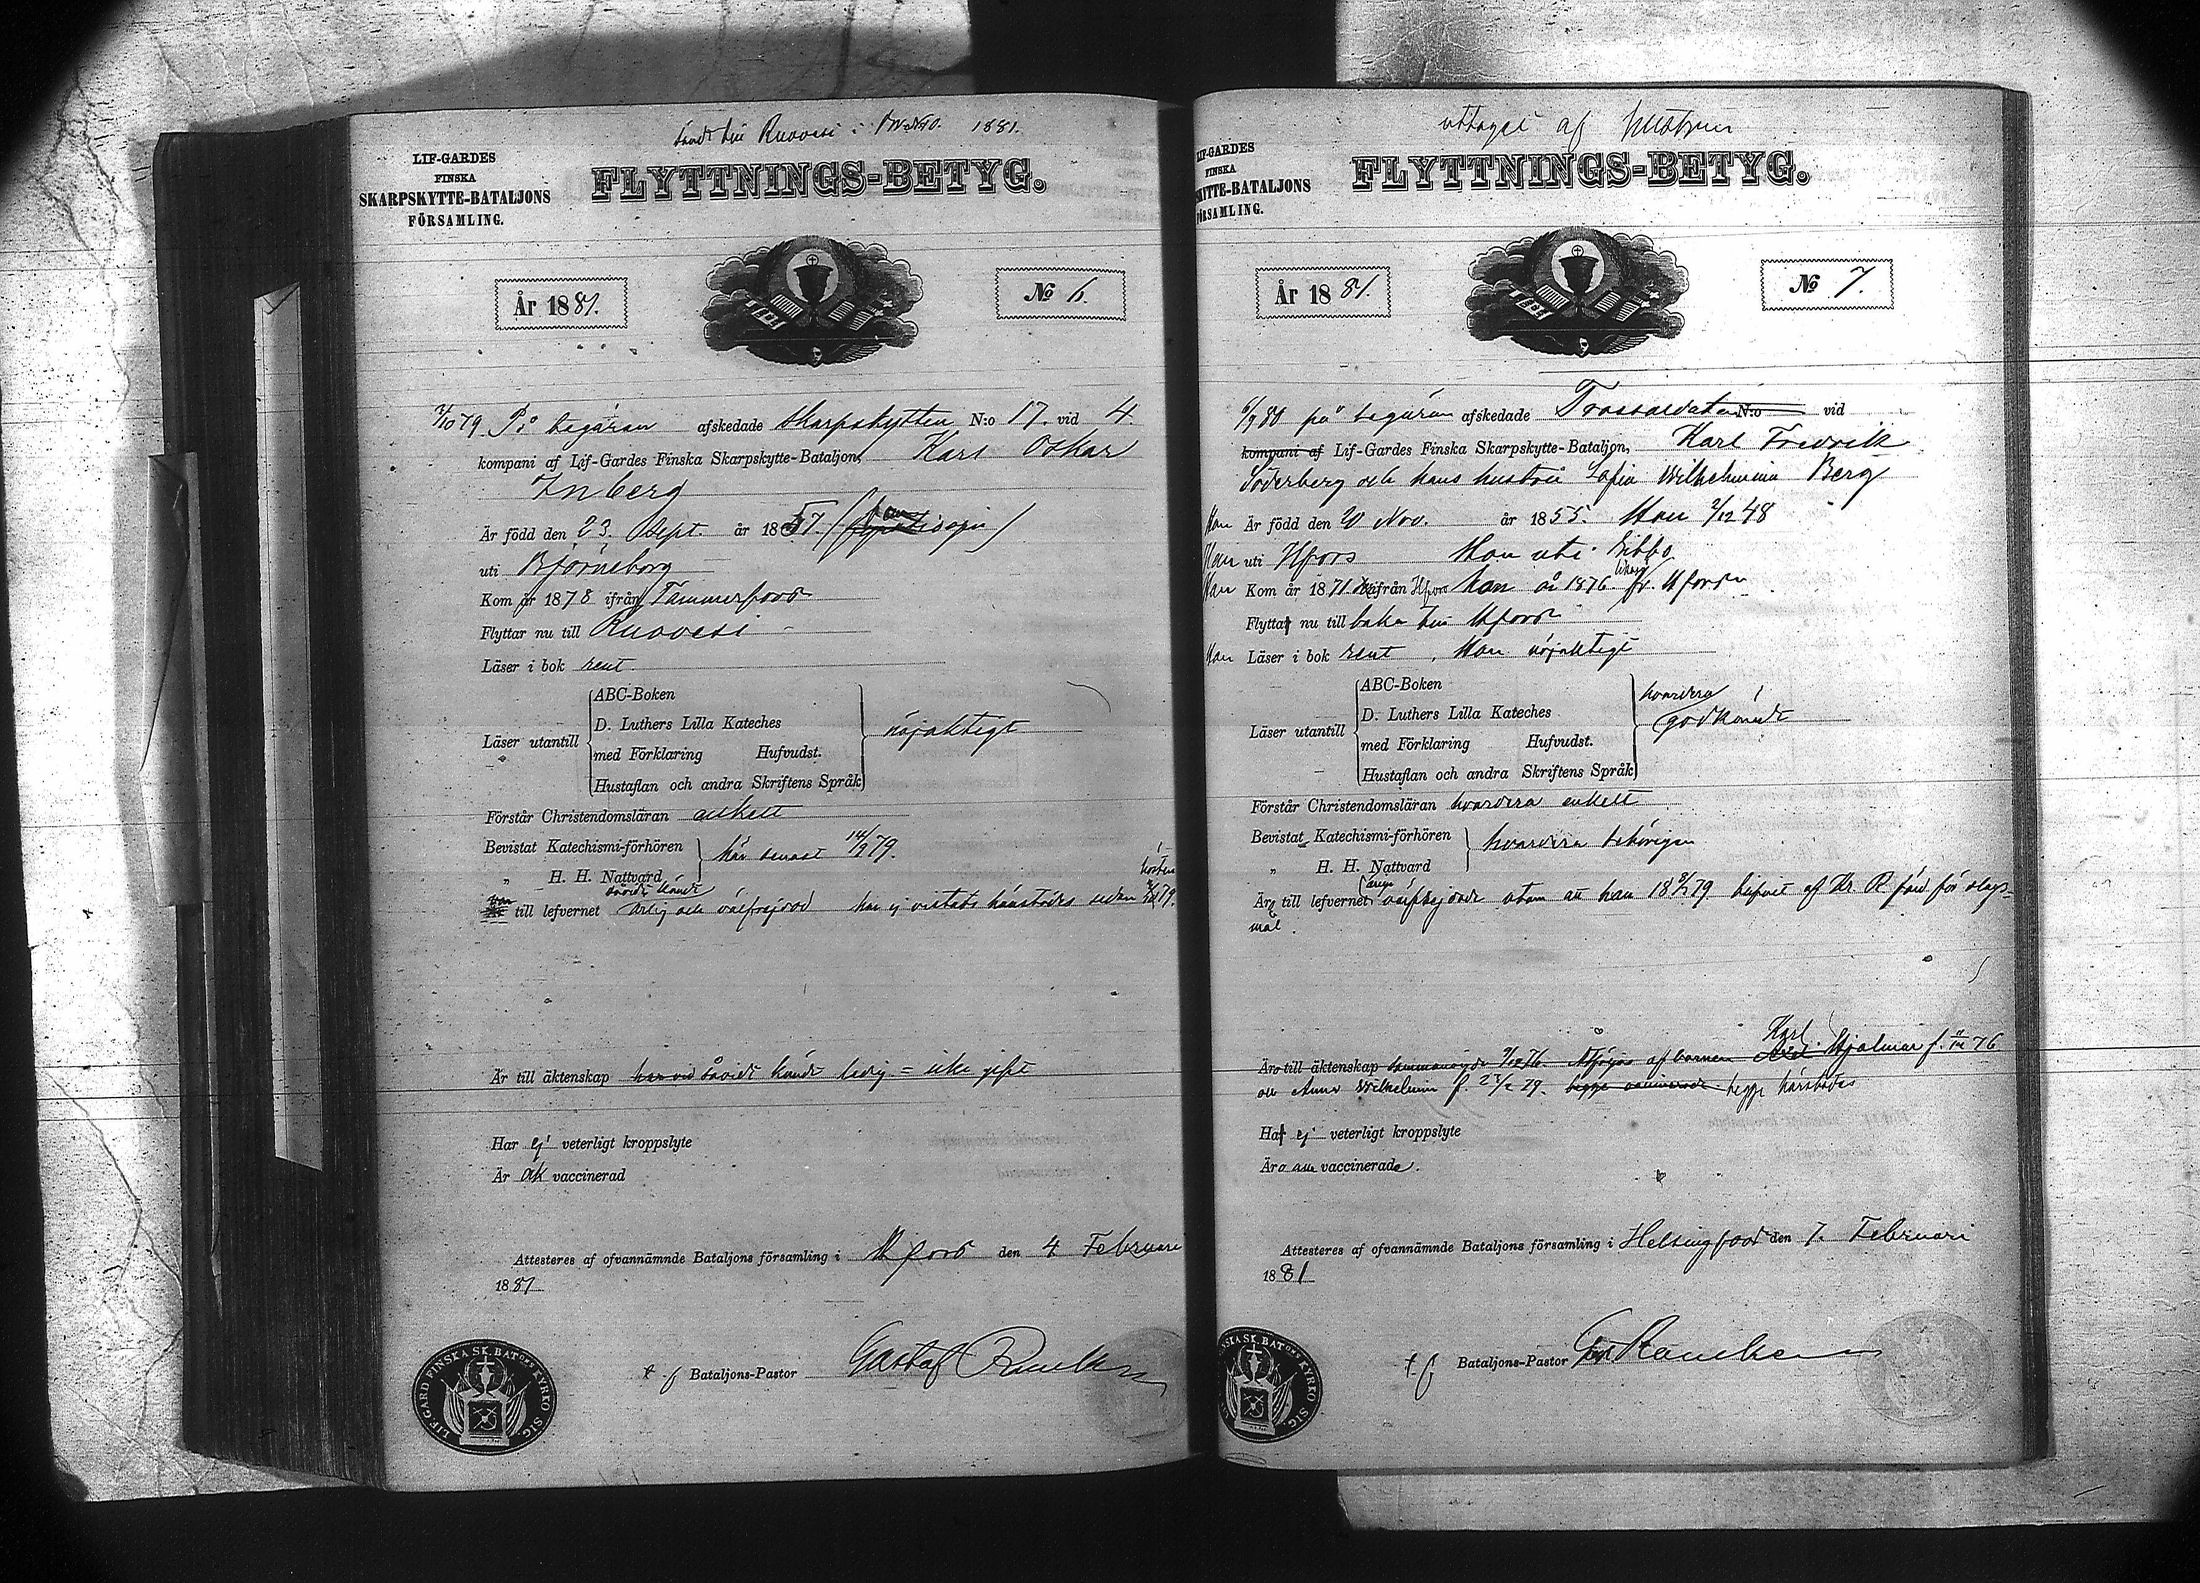 Ruovesi 1881.
LIF-GARDES
FINSKA
SKARPSKYTTE-BATALJONS
FÖRSAMLING.
FLYTTNINGS-BETYG.
År 1881.
No 6.
2/10 79. På begäran afskedade Skarpskytten N:o 17. vid 4.
kompani af Lif-Gardes Finska Skarpskytte-Bataljon, Karl Oskar
Inberg
Är född den 23. Sept. år 1857.
uti Björneborg
Kom år 1878 ifrån Tammerfors
Flyttar nu till Ruovesi
Läser i bok rent
ABC-Boken
D. Luthers Lilla Kateches
Läser utantill nöjaktigt
med Förklaring Hufvudst.
Hustaflan och andra Skriftens Språk
Förstår Christendomsläran enkelt
Bevistat Katechismi-förhören här senast 14/9 79.
„ H. H. Nattvard
till lefvernet ärlig och välfrejdad har ej vistats härstädes sedan hösten 79.
Är till äktenskap har vid såvidt kändt ledig = icke gift
Har ej veterligt kroppslyte
Är ak vaccinerad
Attesteres af ofvannämnde Bataljons församling i Hfors den 4 Februari
1881
t f Bataljons-Pastor Gustaf
LIF.GARD FINSKA SK.BAT:ONS KYRKO SIG.
uttaget af
LIF-GARDES
FINSKA
SKYTTE-BATALJONS
FÖRSAMLING.
FLYTTNINGS-BETYG.
År 1881.
No 7.
6/9 80 på begäran afskedade Trossoldaten N:o vid
kompani af Lif-Gardes Finska Skarpskytte-Bataljon, Karl Fredrik
Söderberg och hans hustru Sofia Wilhelmina Berg
Han Är född den 20 Nov. år 1855. Hon 2/12 48
Han uti Hfors Hon uti Sibbo
Han Kom år 1871 ifrån Hfors hon år 1876 likaså fr. Hfors
Flytta nu till baka till Hfors
Han Läser i bok rent, Hon nöjaktigt
ABC-Boken hvardera
D. Luthers Lilla Kateches godkändt
Läser utantill
med Förklaring Hufvudst.
Hustaflan och andra Skriftens Språk
Förstår Christendomsläran hvardera enkelt
Bevistat Katechismi-förhören hvardera behörigen
„ H. H. Nattvard
Äro till lefvernet välfrejdade utom att han 18 79 blifvit af för slags-
mål.
Karl
Äro till äktenskap af barnen Hjalmar f. 76
och Anna Wilhelmina f. 79. begge härstädes
Ha ej veterligt kroppslyte
Äro vaccinerade.
Attesteres af ofvannämnde Bataljons församling i Helsingfors den 7. Februari
1881
t. f. Bataljons-Pastor
SKA SK.BAT:ONS KYRKO SIG.